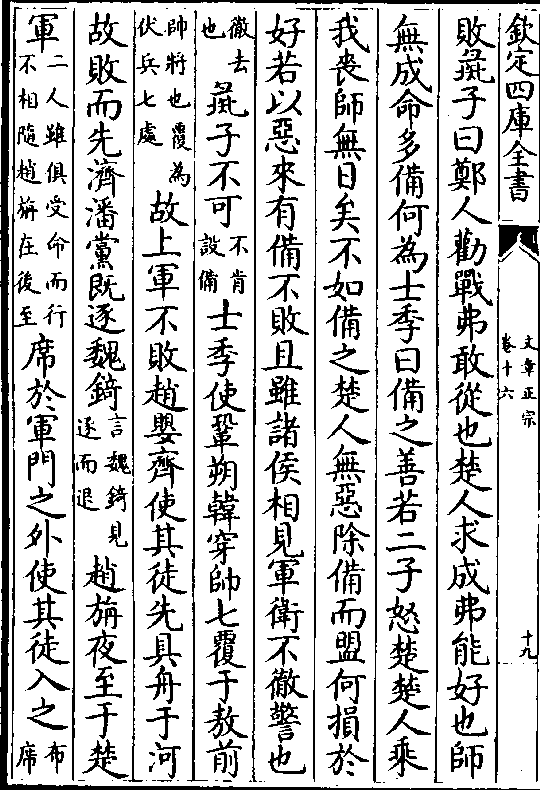 欽定四庫全書
文章正宗
卷十六
十九
敗彘子曰鄭人勸戰弗敢從也楚人求成弗能好也師
無成命多備何為士季曰備之善若二子怒楚楚人乘
我喪師無日矣不如備之楚人無惡除備而盟何損於
好若以惡來有備不敗且雖諸侯相見軍衛不徹警也
徹去也彘子不可不肯設備士季使鞏朔韓穿帥七覆于敖前
帥將也覆為伏兵七處故上軍不敗趙嬰齊使其徒先具舟于河
故敗而先濟潘黨既逐魏錡言魏錡見逐而退趙旃夜至于楚
軍二人雖俱受命而行不相隨趙旃在後至席於軍門之外使其徒入之布席